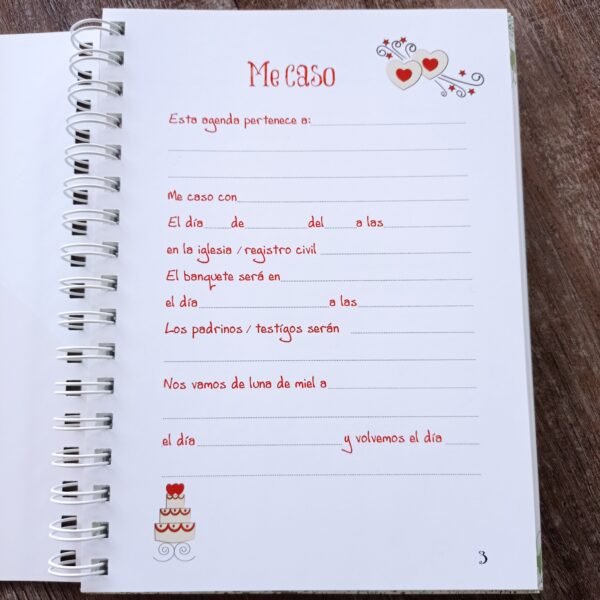 Me caso
Esta agenda pertenece a:
Me caso con
El día de del a las
en la iglesia / registro civil
El banquete será en
el día a las
Los padrinos / testigos serán
Nos vamos de luna de miel a
el día y volvemos el día
3